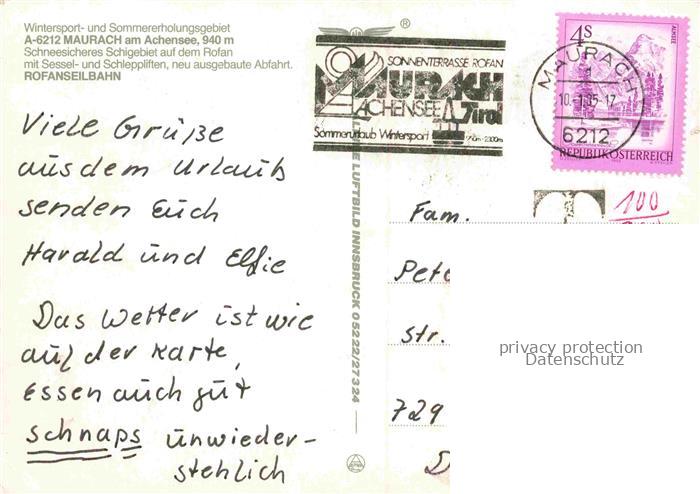 Wintersport- und Sommererholungsgebiet
A-6212 MAURACH am Achensee, 940 m
Schneesicheres Schigebiet auf dem Rofan
mit Sessel- und Schleppliften, neu ausgebaute Abfahrt.
ROFANSEILBAHN
Viele Grüße
aus dem Urlaub
senden Euch
Harald und Elfie
Das Wetter ist wie
auf der Karte,
Essen auch gut
schnaps unwieder-
stehlich
®
SONNENTERRASSE ROFAN
MAURACH
ACHENSEE Tirol
Sommerurlaub Wintersport
LUFTBILD INNSBRUCK 05222/27324
MAURACH
17
6212
4S
ALMSEE
REPUBLIK ÖSTERREICH
100
Fam.
Pete
Str.
729
D
privacy protection
Datenschutz